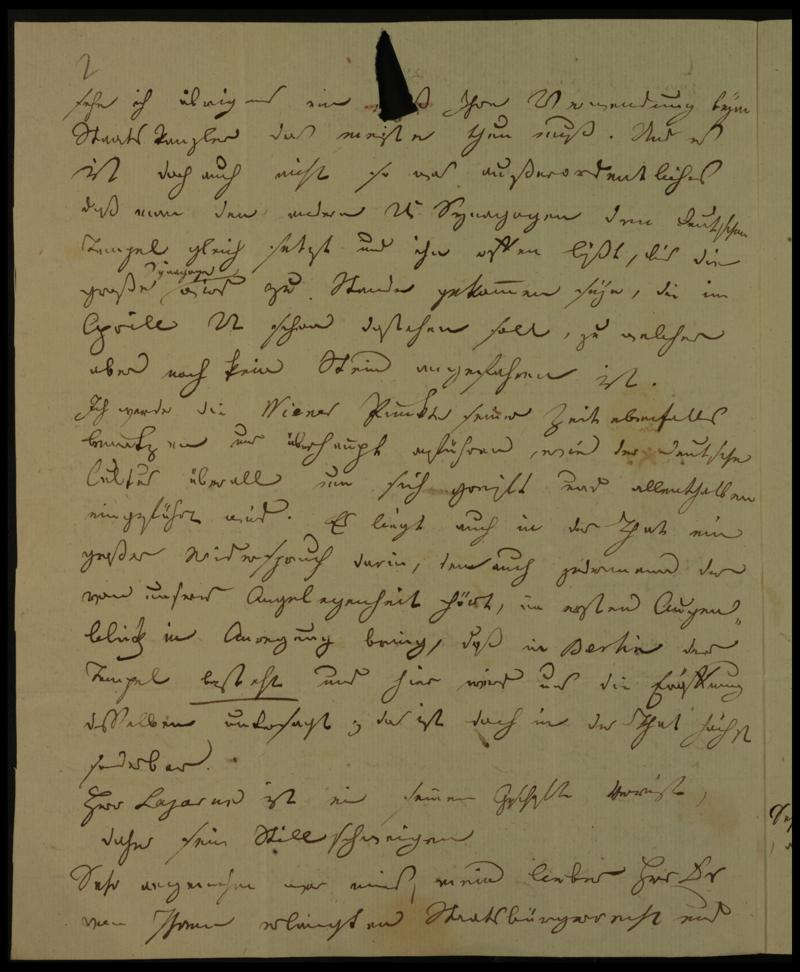 2
sehe ich übrigens ein daß Ihre Verwendung beym
Staats Kanzler das meiste thun muß. Und es
ist doch auch nicht so was außerordentliches
daß man den andern Synagogen den deutschen
Tempel gleich setzt und ihn offen läßt, bis die
große Synagoge zu Stande gekommen seye, die im
Aprill schon dastehen soll, zu welcher
aber noch kein Stein angefahren ist.
Ich werde die Wiener Punkte seiner Zeit ebenfalls
benutzen und überhaupt anführen, wie der deutsche
Cultus überall um sich greift und allenthalben
eingeführt wird. Es liegt auch in der That ein
großer Widerspruch darin, den auch jedermann der
von unserer Angelegenheit hört, im ersten Augen„
blick in Anregung bringt, daß in Berlin der
Tempel besteht und hier wird uns die Eröffnung
desselben untersagt; das ist doch in der That höchst
sonderbar.
Herr Lazarus ist in seinen Geschäften verreist,
daher sein Stillschweigen
Sehr angenehm war mirs, mein lieber Herr Dr
von Ihrem erlangten Staatsbürgerrecht und